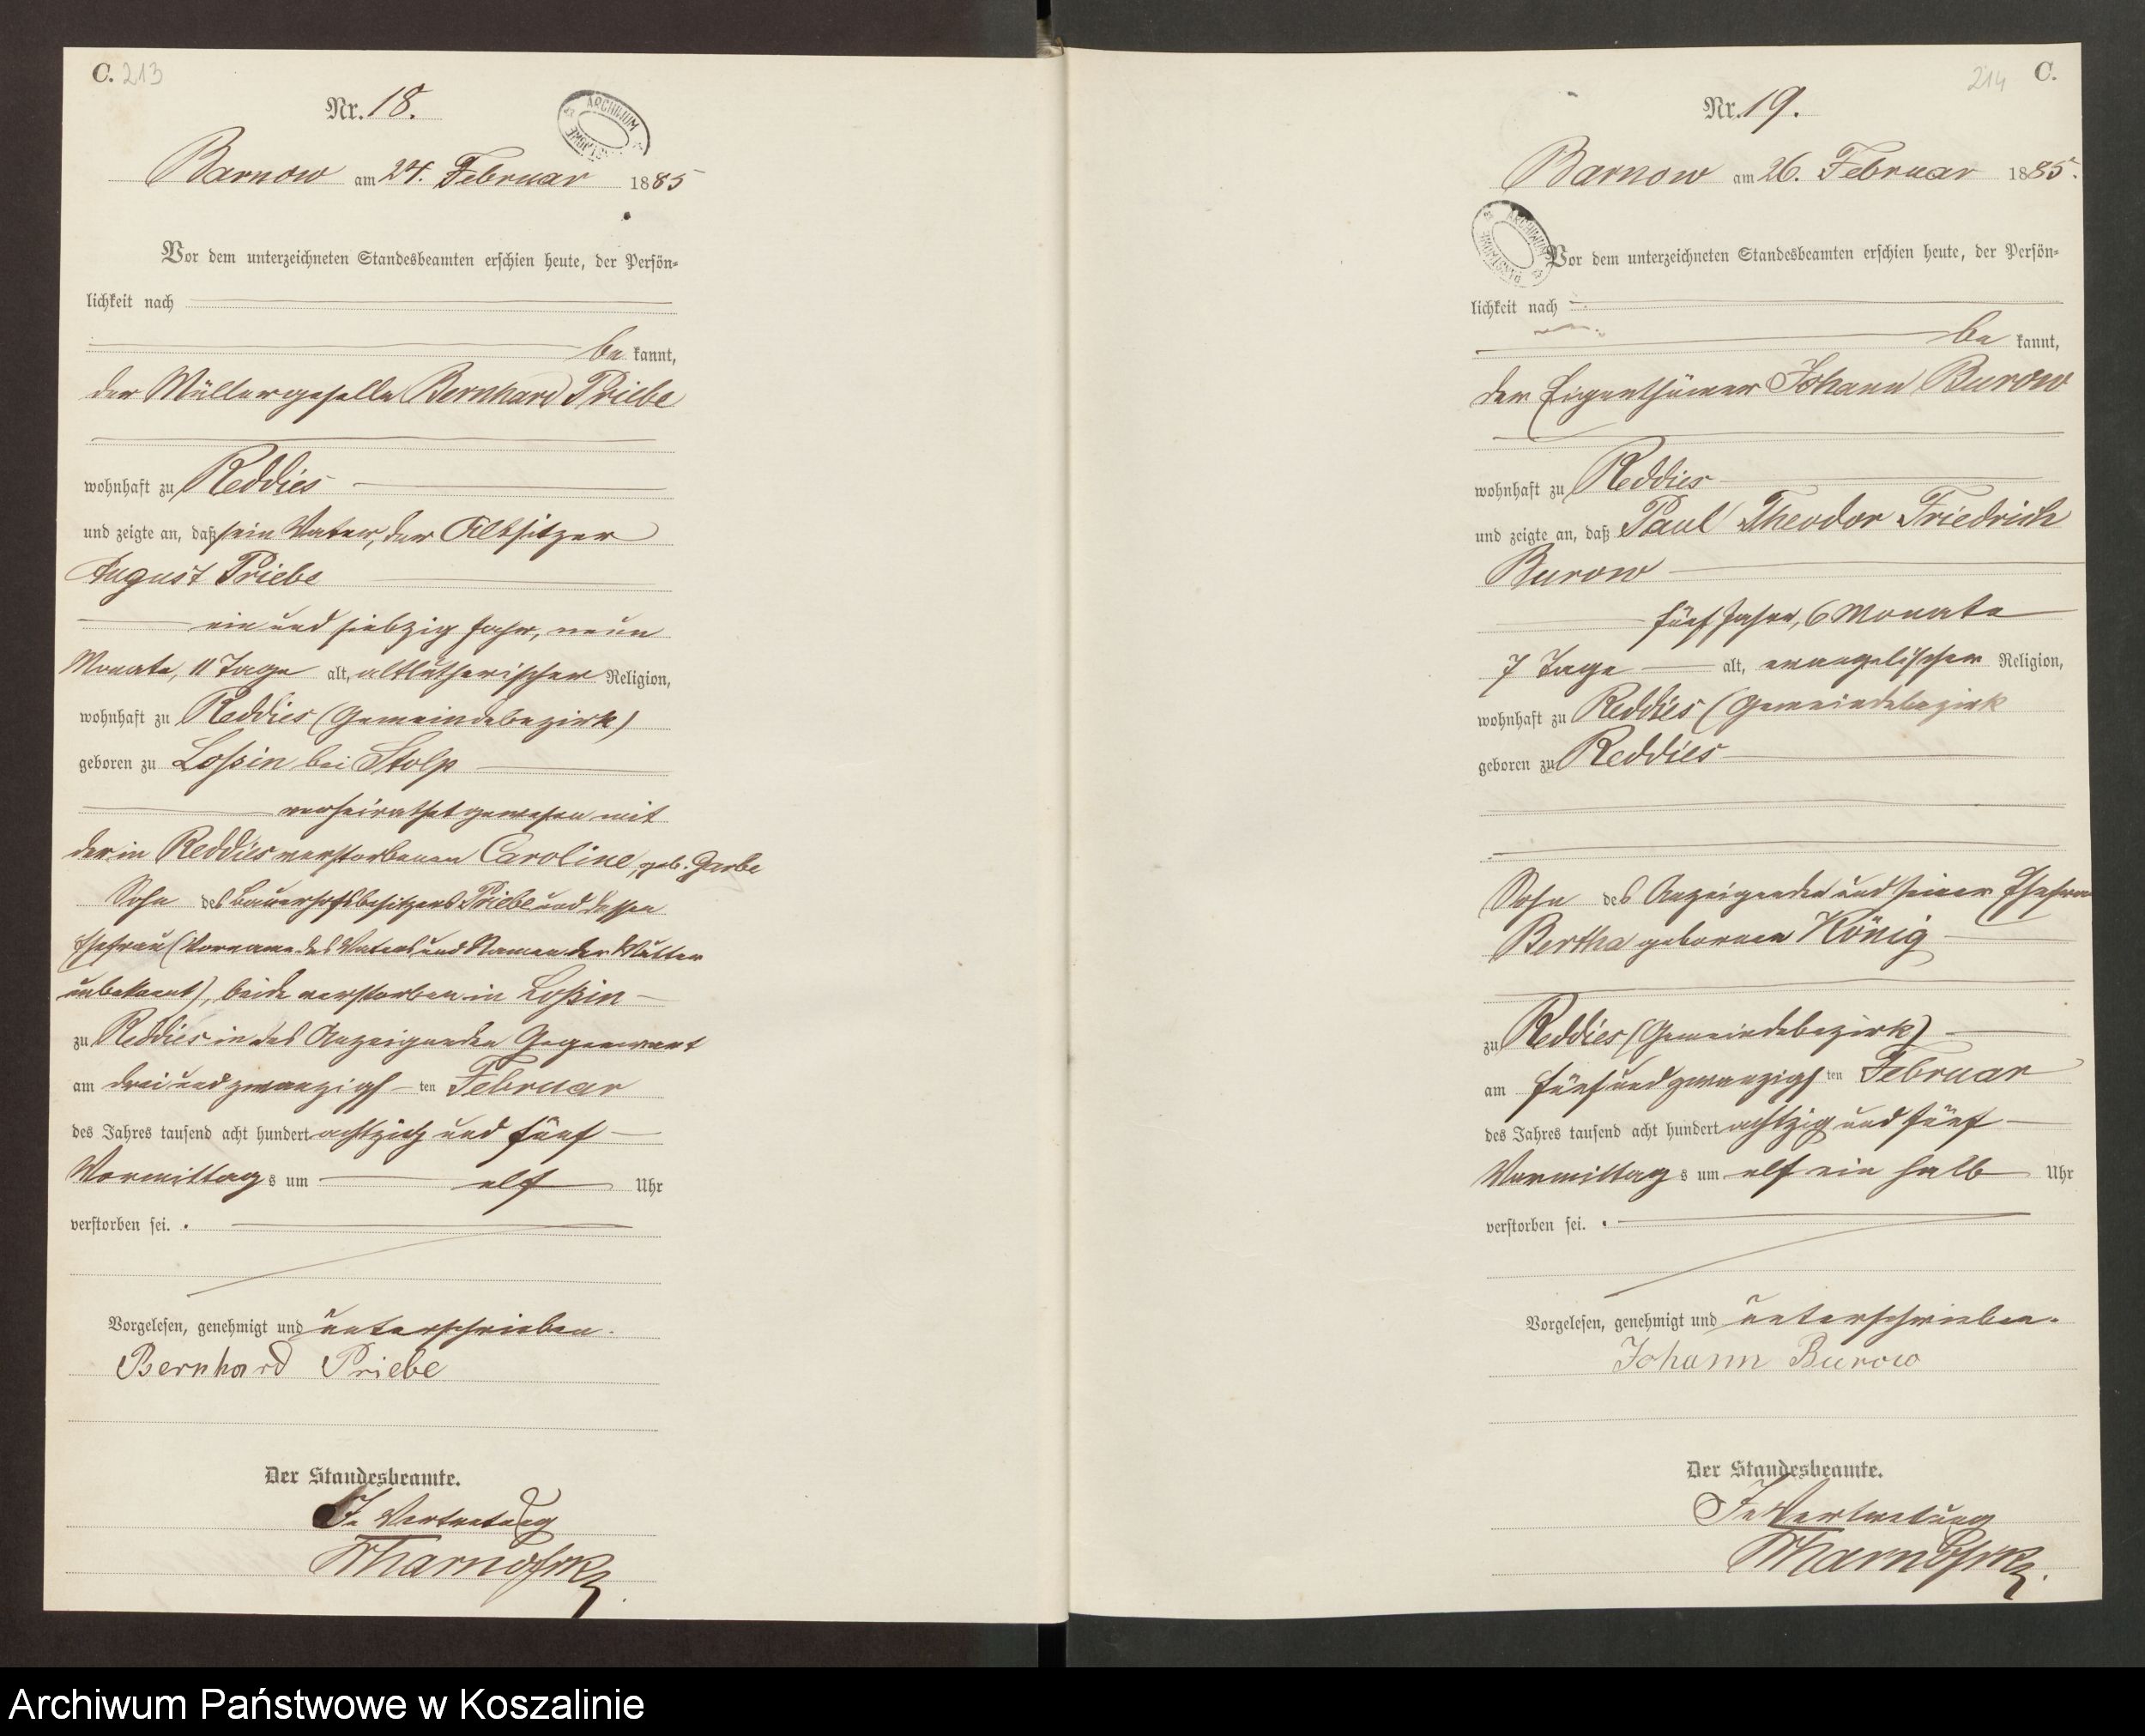 C. 213
Nr. 18.
ARCHIWUM
Barnow am 24. Februar 1885
Vor dem unterzeichneten Standesbeamten erschien heute, der Persön-
lichkeit nach
be kannt,
der Müllergeselle Bernhard Priebe
wohnhaft zu Reddies
und zeigte an, daß sein Vater, der Altsitzer
August Priebe
ein und siebzig Jahr, neun
Monate, 11 Tage alt, altlutherischer Religion,
wohnhaft zu Reddies (Gemeindebezirk)
geboren zu Loßin bei Stolp
verheirathet gewesen mit
der in Reddies verstorbenen Caroline, geb. Garbe
Sohn des Bauerhofsbesitzers Priebe und dessen
Ehefrau (Vorname des Vaters und Namen der Mutter
unbekannt), beide verstorben in Loßin
zu Reddies in des Anzeigenden Gegenwart
am drei und zwanzigs ten Februar
des Jahres tausend acht hundert achtzig und fünf
Vormittag s um elf Uhr
verstorben sei.
Vorgelesen, genehmigt und unterschrieben.
Bernhard Priebe
Der Standesbeamte.
In Vertretung
214 C.
Nr. 19.
Barnow am 26. Februar 1885.
ARCHIWUM
Vor dem unterzeichneten Standesbeamten erschien heute, der Persön-
lichkeit nach
be kannt,
der Eigenthümer Johann Burow
wohnhaft zu Reddies
und zeigte an, daß Paul Theodor Friedrich
Burow
fünf Jahre, 6 Monate
7 Tage alt, evangelischer Religion,
wohnhaft zu Reddies (Gemeindebezirk
geboren zu Reddies
Sohn des Anzeigenden und seiner Ehefrau
Bertha geborenen König
zu Reddies (Gemeindebezirk)
am fünf und zwanzigs ten Februar
des Jahres tausend acht hundert achtzig und fünf
Vormittag s um elf ein halb Uhr
verstorben sei.
Vorgelesen, genehmigt und unterschrieben.
Johann Burow
Der Standesbeamte.
In Vertretung
Archiwum Państwowe w Koszalinie